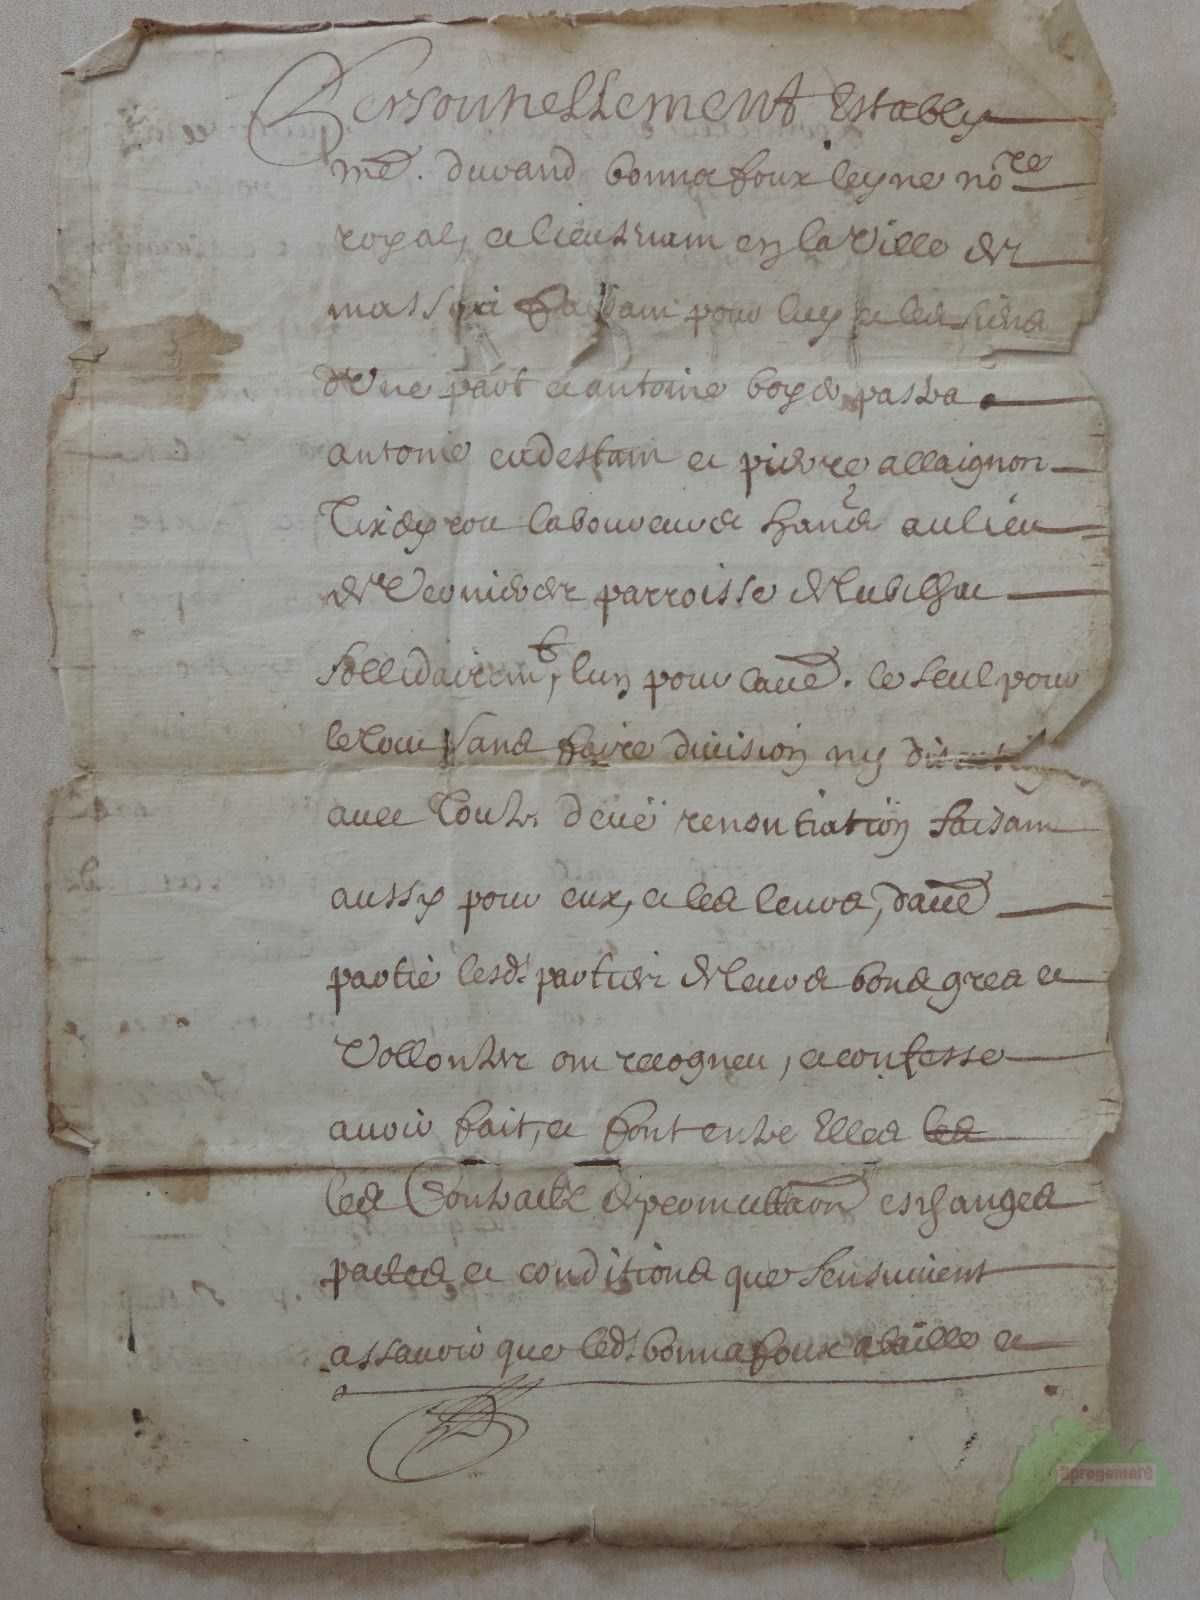 Personnellement Estably
me. durand bonnafoux leyne no.re
royal, et lieutenant en la Ville de
massiac faisant pour luy et les siens
d'Une part et antoine boyer pastre
antoine et pierre allaignon
laboureurs hants au lieu
de parroisse de lubilhac
sollidairemt, lun pour laue. le seul pour
le tout sans faire diuision ny
auec toute deüe renontiation faisant
aussy pour eux, et les leurs, daue
partie lesd. parties de leurs bons gres et
Vollontes ont recogneu, et confesse
auoir fait, et font entre Elles les
les Contractz de permuttaon eschanges
pactes et conditions que sensuiuent
assauoir que led. bonnafoux a baille et
aprogemere